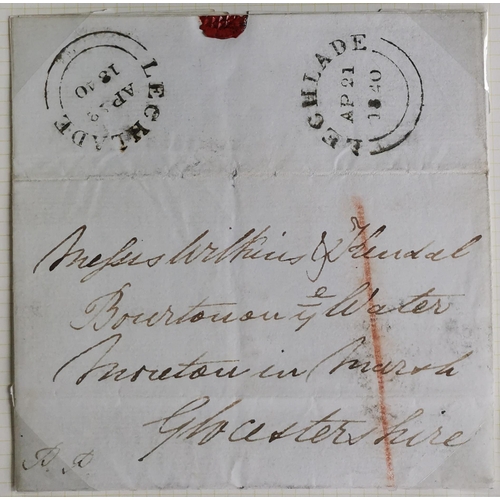 LECHLADE
AP
1840
LECHLADE
AP 21
1840
Messrs Wilkins & Kendal
Bourton on ye Water
Moreton in Marsh
Glocestershire
P. P.